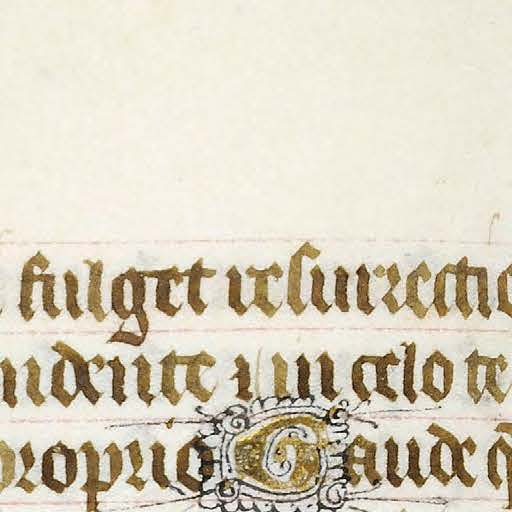 fulget resurrectio
ndente i in celo te
proprio Gaude q